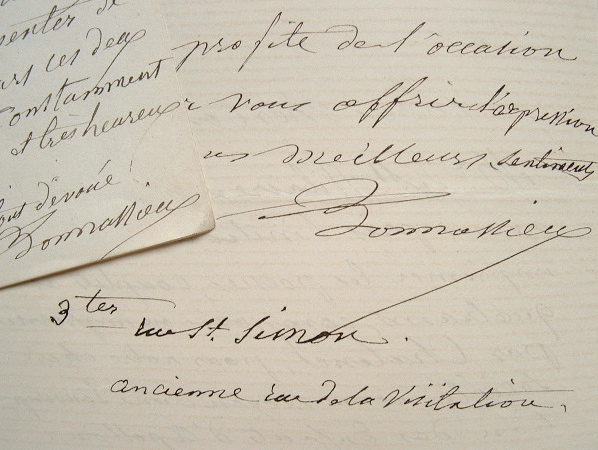 senter de
ces deux
Constamment
et très heureux
tout dévoué!
Bonnassieux
profite de l'occasion
vous offrir l'expression
meilleurs sentiments
Bonnassieux
3 ter rue St. Simon.
ancienne rue de la Visitation.